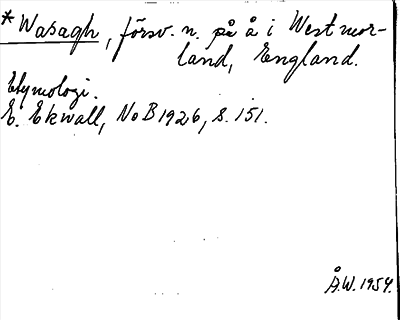 * Wasagh, försv. n. på å i Westmor-
land, England.
Etymologi.
E. Ekwall, NoB 1926, s. 151.
Å.W. 1954.